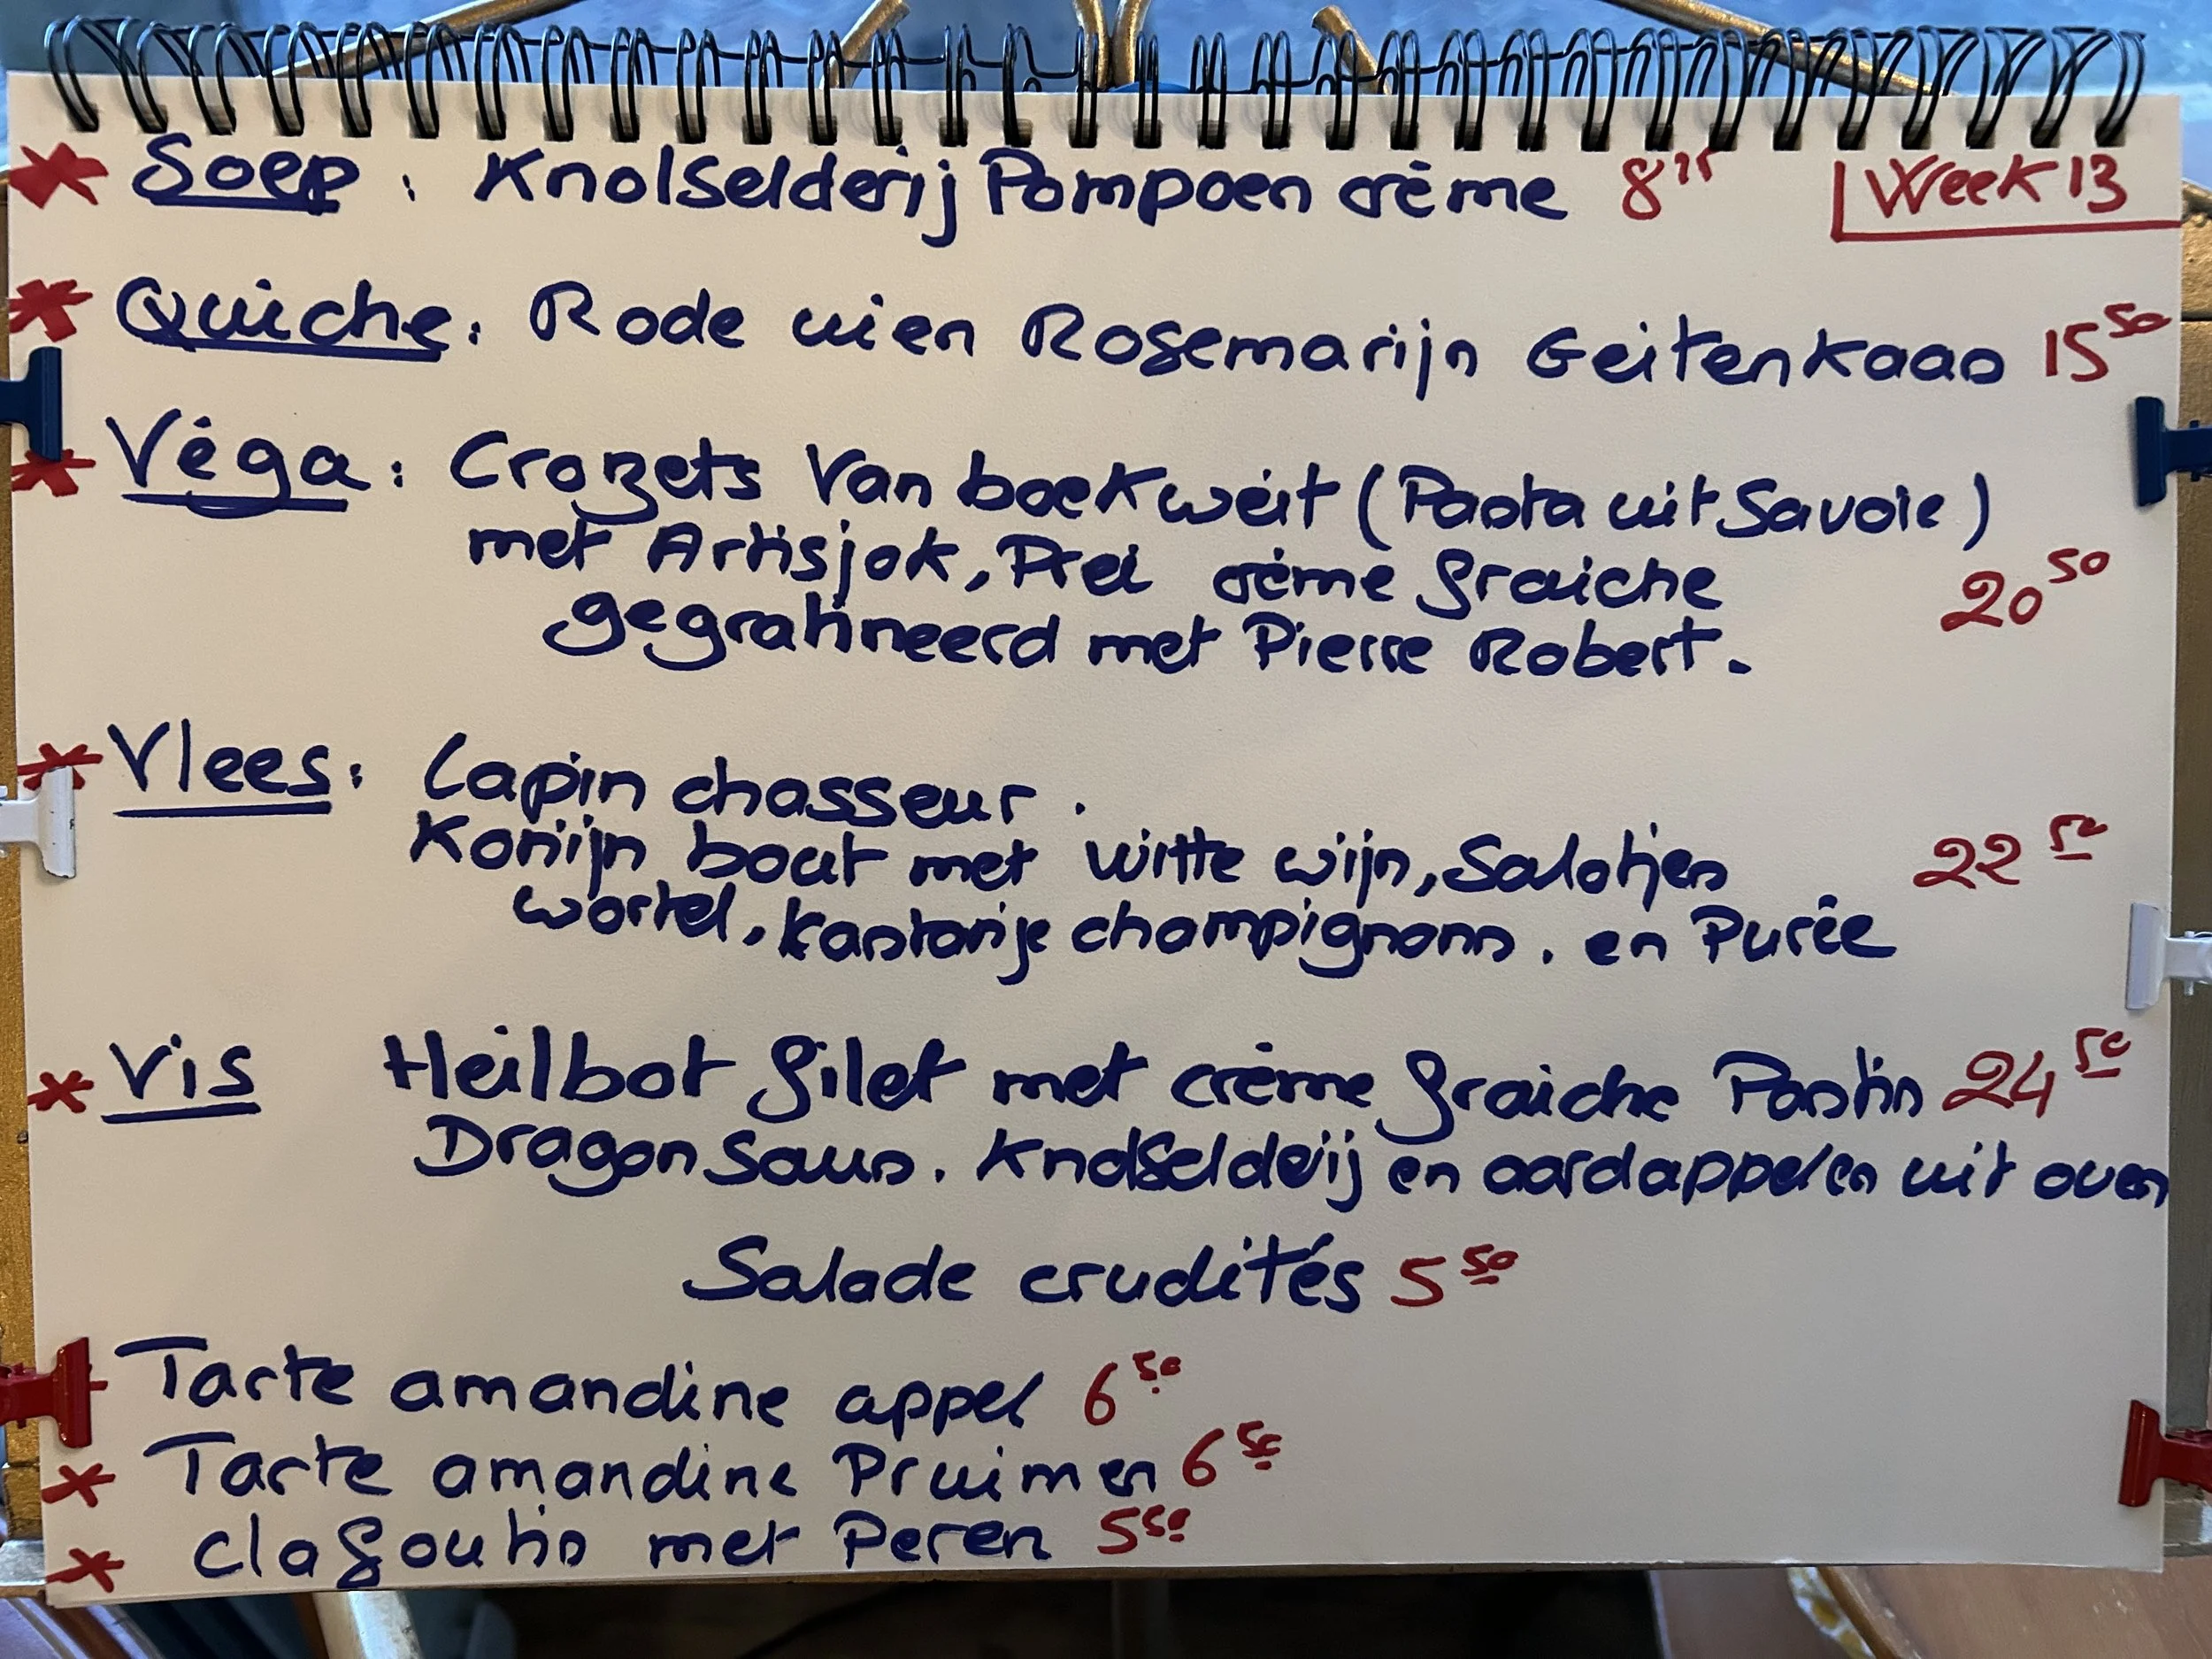 Soep : Knolselderij Pompoen crème Week 13
Quiche : Rode uien Rosemarijn Geitenkaas 15 50
Véga : Crozets van boekweit (Pasta uit Savoie)
met Artisjok, Prei crème fraiche 20 50
gegratineerd met Pierre Robert.
Vlees : Lapin chasseur .
Konijn bout met witte wijn, Salotjes 22 50
wortel, kastanje champignons . en Purêe
Vis Heilbot filet met crème fraiche Pastis 24 50
Dragon saus . Knolselderij en aardappelen uit oven
Salade crudités 5 50
Tarte amandine appel 6 50
Tarte amandine Pruimen 6 50
clafoutis met Peren 5 50